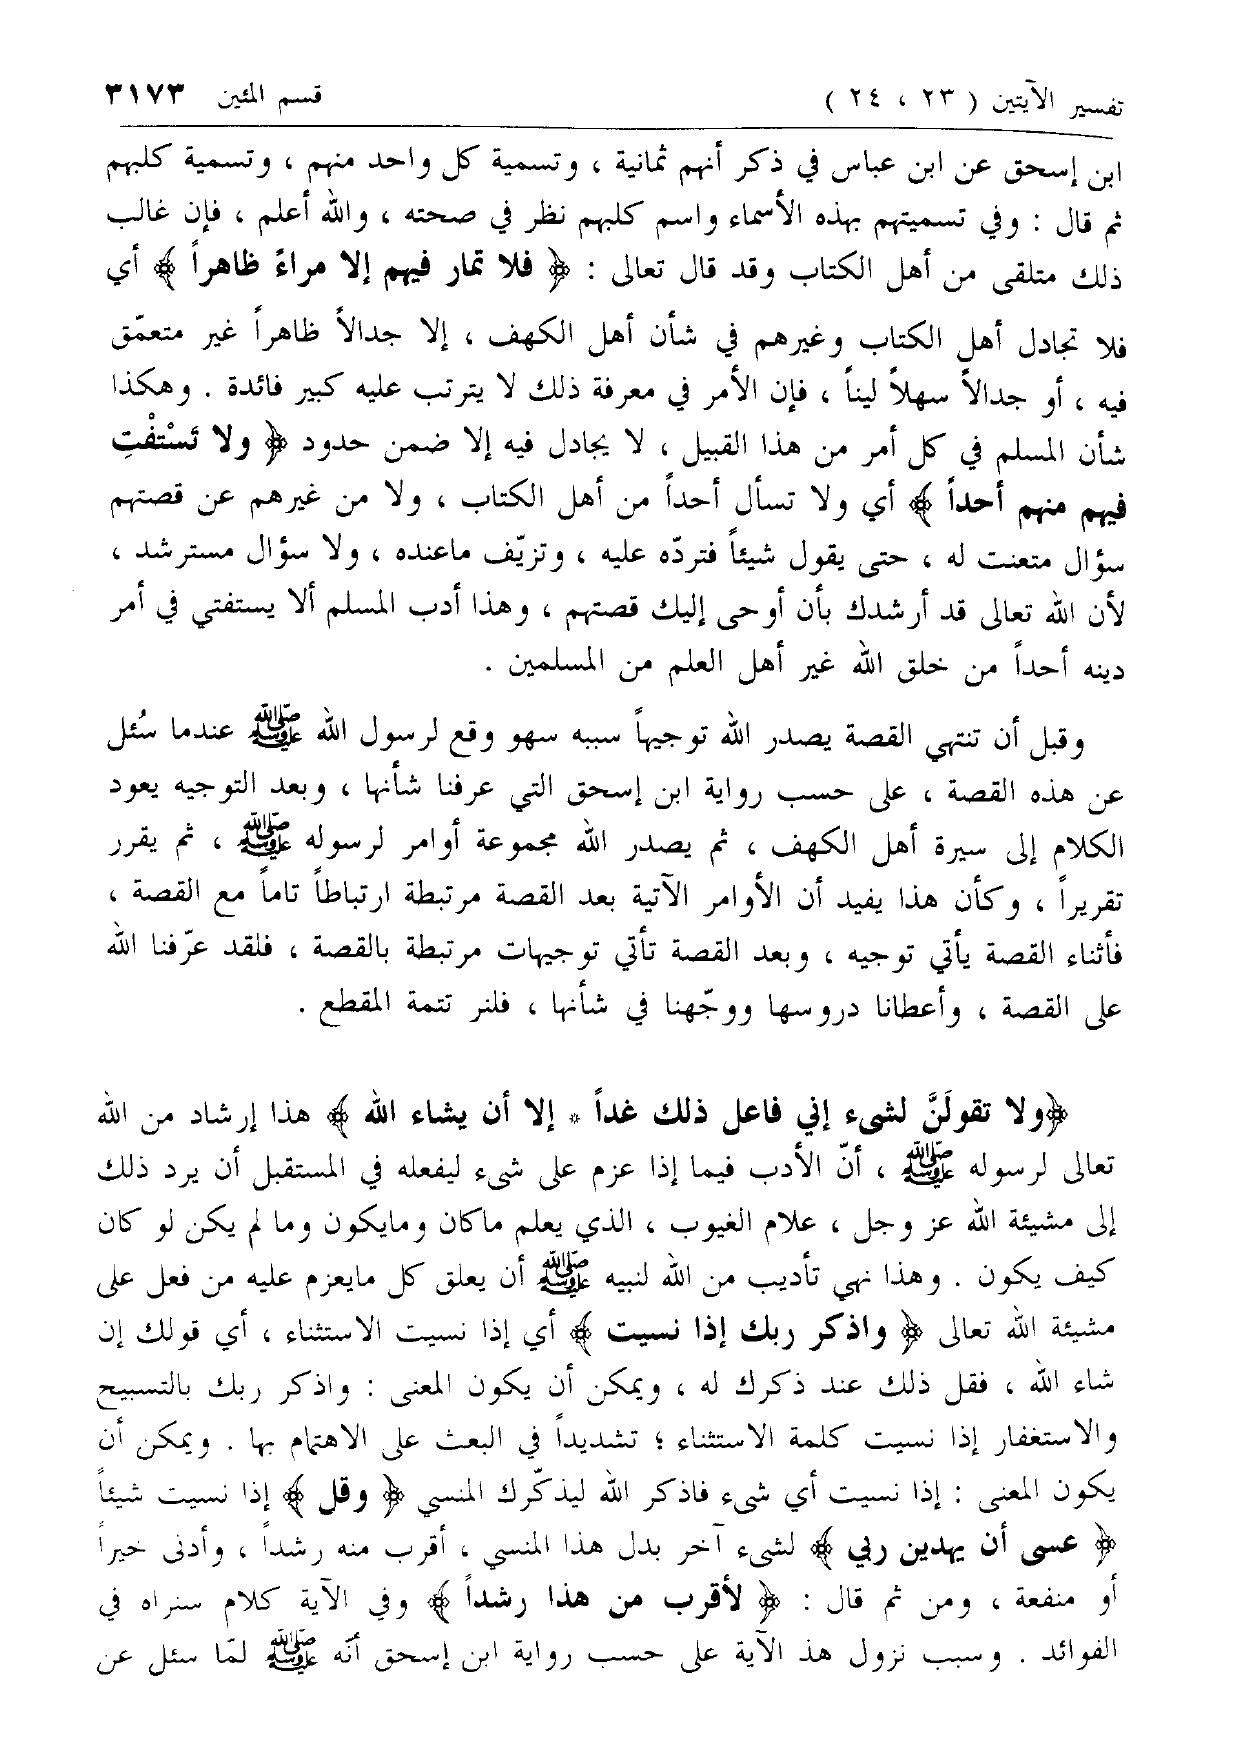 تفسير الآيتين ( ٢٣ ، ٢٤ ) قسم المئين ٣١٧٣
ابن إسحق عن ابن عباس في ذكر أنهم ثمانية ، وتسمية كل واحد منهم ، وتسمية كلبهم
ثم قال : وفي تسميتهم بهذه الأسماء واسم كلبهم نظر في صحته ، والله أعلم ، فإن غالب
ذلك متلقى من أهل الكتاب وقد قال تعالى : ﴿ فلا تمار فيهم إلا مراءً ظاهراً ﴾ أي
فلا تجادل أهل الكتاب وغيرهم في شأن أهل الكهف ، إلا جدالاً ظاهراً غير متعمّق
فيه ، أو جدالاً سهلاً ليناً ، فإن الأمر في معرفة ذلك لا يترتب عليه كبير فائدة . وهكذا
شأن المسلم في كل أمر من هذا القبيل ، لا يجادل فيه إلا ضمن حدود ﴿ ولا تَسْتفْتِ
فيهم منهم أحداً ﴾ أي ولا تسأل أحداً من أهل الكتاب ، ولا من غيرهم عن قصتهم
سؤال متعنت له ، حتى يقول شيئاً فتردّه عليه ، وتزيّف ماعنده ، ولا سؤال مسترشد ،
لأن الله تعالى قد أرشدك بأن أوحى إليك قصتهم ، وهذا أدب المسلم ألا يستفتي في أمر
دينه أحداً من خلق الله غير أهل العلم من المسلمين .
وقبل أن تنتهي القصة يصدر الله توجيهاً سببه سهو وقع لرسول الله ﷺ عندما سُئل
عن هذه القصة ، على حسب رواية ابن إسحق التي عرفنا شأنها ، وبعد التوجيه يعود
الكلام إلى سيرة أهل الكهف ، ثم يصدر الله مجموعة أوامر لرسوله ﷺ ، ثم يقرر
تقريراً ، وكأن هذا يفيد أن الأوامر الآتية بعد القصة مرتبطة ارتباطاً تاماً مع القصة ،
فأثناء القصة يأتي توجيه ، وبعد القصة تأتي توجيهات مرتبطة بالقصة ، فلقد عرّفنا الله
على القصة ، وأعطانا دروسها ووجّهنا في شأنها ، فلنر تتمة المقطع .
﴿ولا تقولَنَّ لشيء إني فاعل ذلك غداً * إلا أن يشاء الله ﴾ هذا إرشاد من الله
تعالى لرسوله ﷺ ، أنّ الأدب فيما إذا عزم على شيء ليفعله في المستقبل أن يرد ذلك
إلى مشيئة الله عز وجل ، علام الغيوب ، الذي يعلم ماكان ومايكون وما لم يكن لو كان
كيف يكون . وهذا نهي تأديب من الله لنبيه ﷺ أن يعلق كل مايعزم عليه من فعل على
مشيئة الله تعالى ﴿ واذكر ربك إذا نسيت ﴾ أي إذا نسيت الاستثناء ، أي قولك إن
شاء الله ، فقل ذلك عند ذكرك له ، ويمكن أن يكون المعنى : واذكر ربك بالتسبيح
والاستغفار إذا نسيت كلمة الاستثناء ؛ تشديداً في البعث على الاهتمام بها . ويمكن أن
يكون المعنى : إذا نسيت أي شيء فاذكر الله ليذكّرك المنسي ﴿ وقل ﴾ إذا نسيت شيئاً
﴿ عسى أن يهدين ربي ﴾ لشيء آخر بدل هذا المنسي ، أقرب منه رشداً ، وأدنى خيراً
أو منفعة ، ومن ثم قال : ﴿ لأقرب من هذا رشداً ﴾ وفي الآية كلام سنراه في
الفوائد . وسبب نزول هذ الآية على حسب رواية ابن إسحق أنّه ﷺ لمّا سئل عن